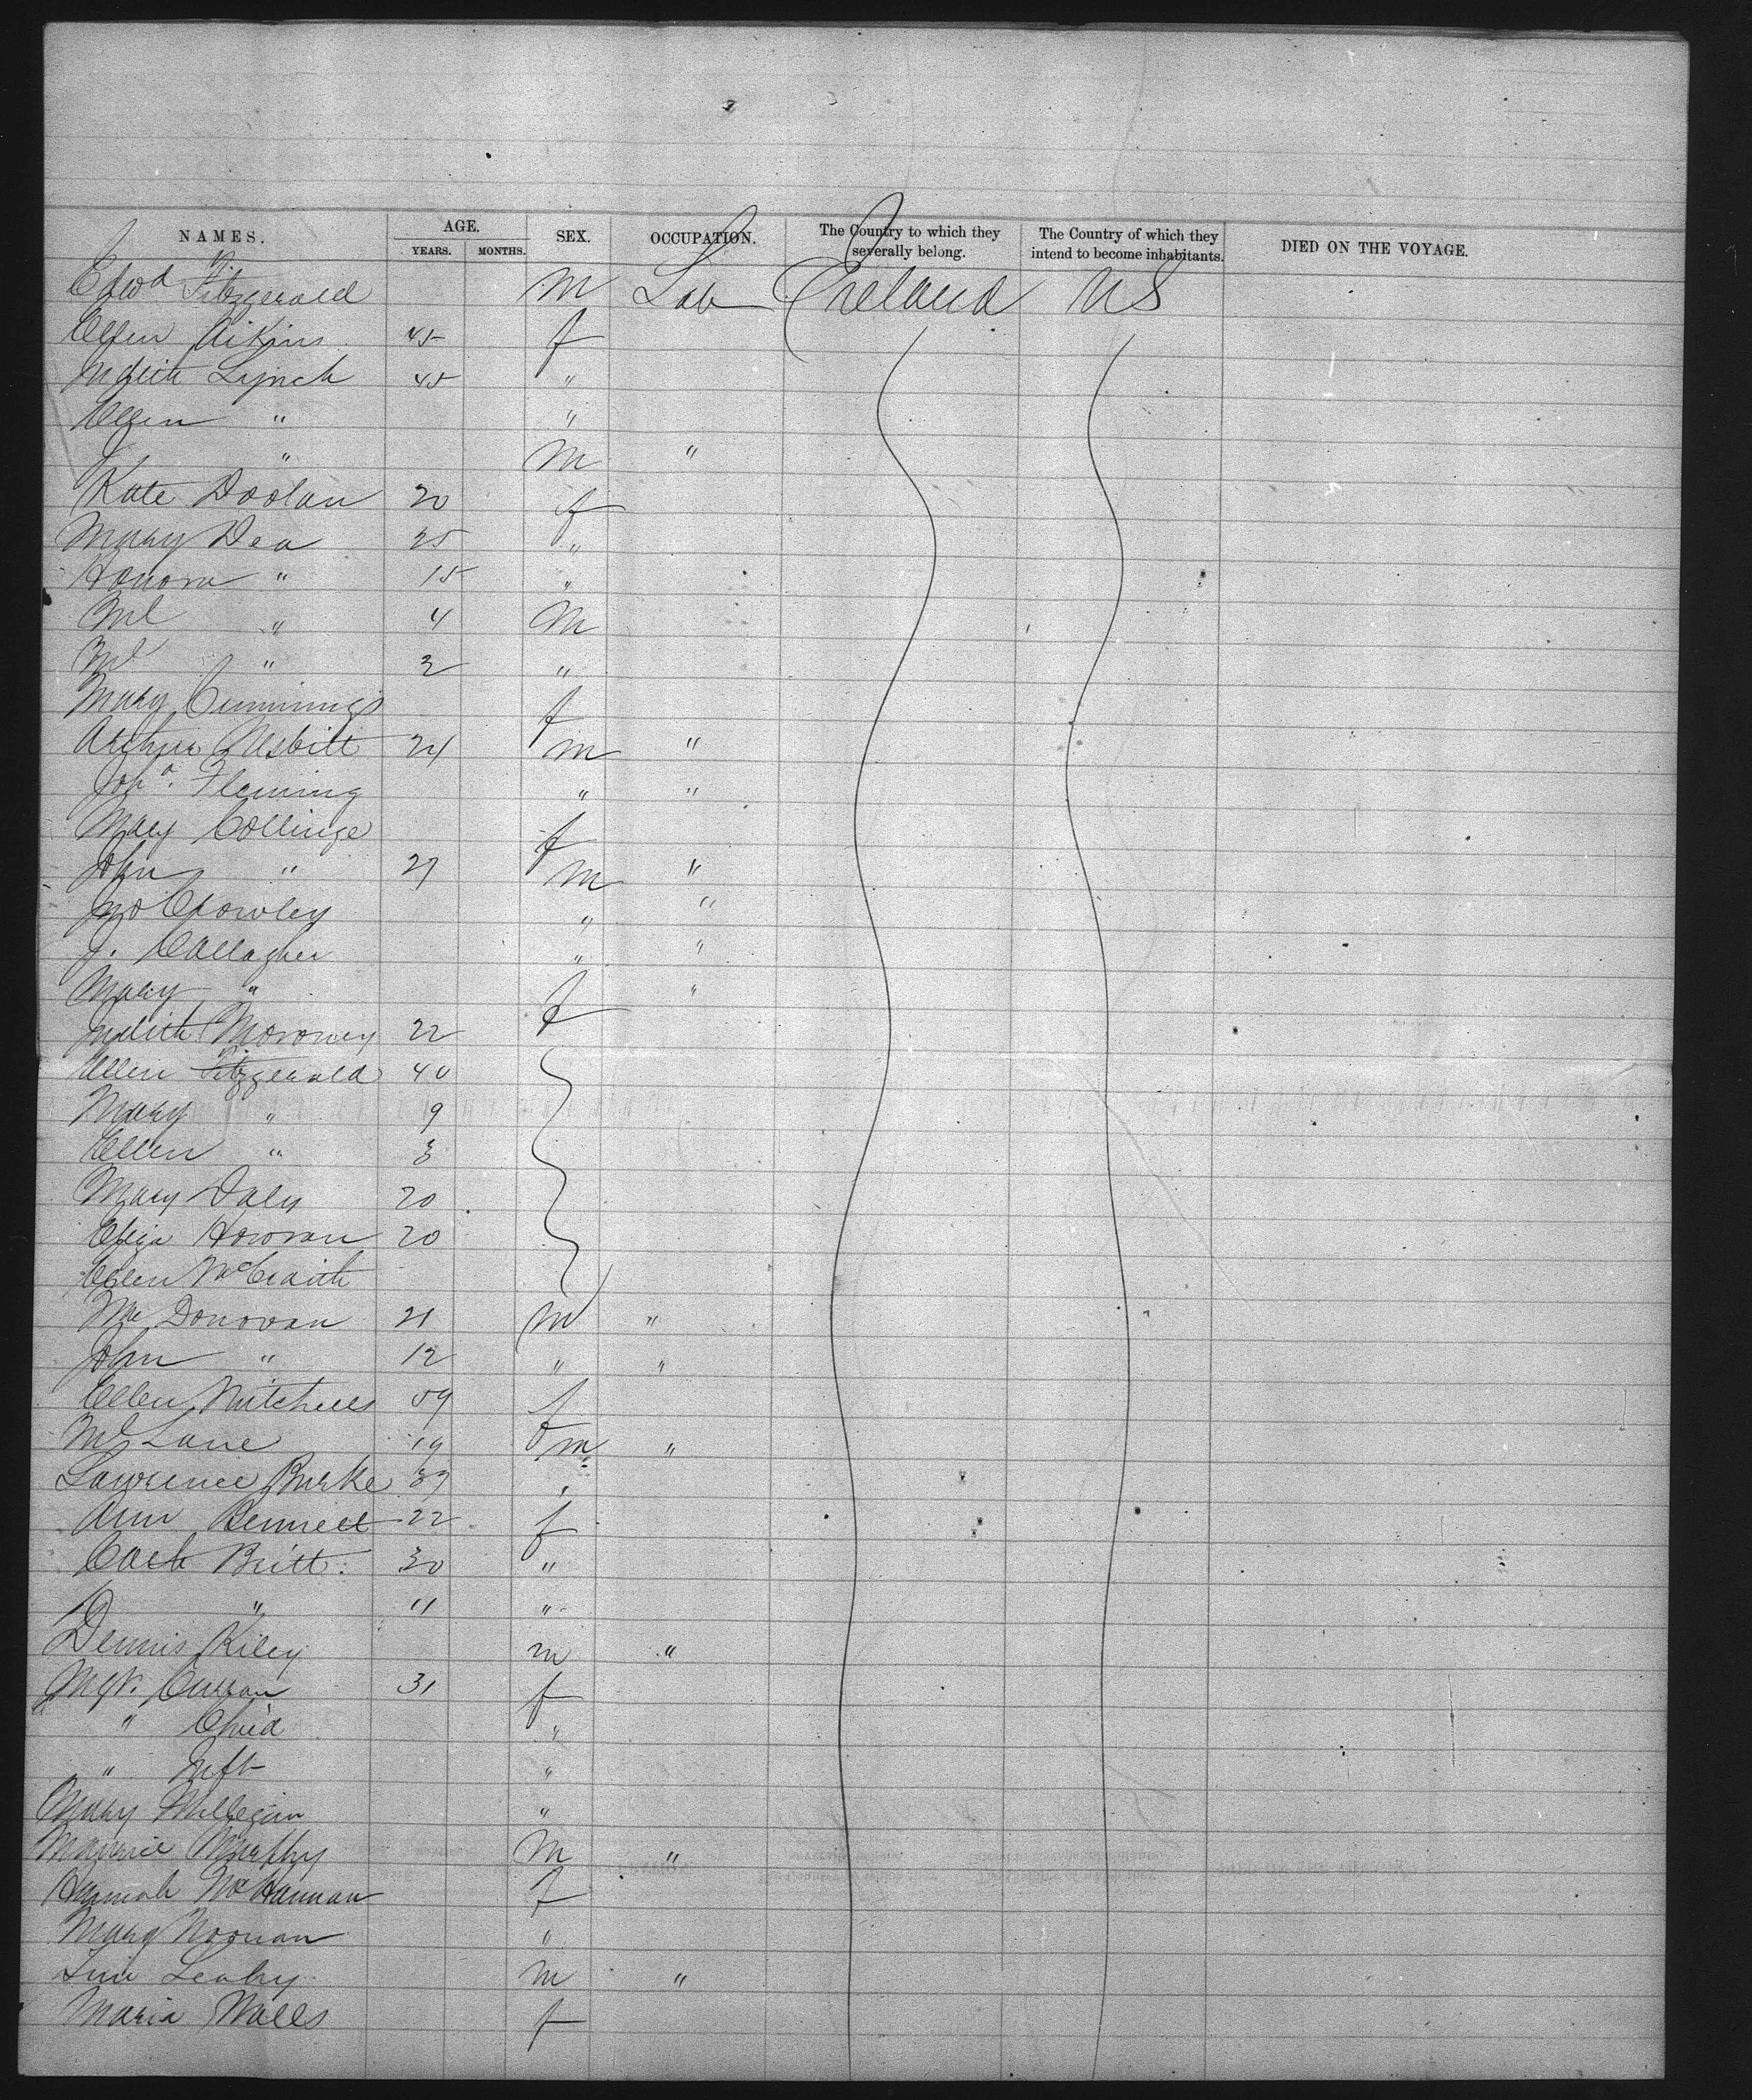 NAMES. AGE. YEARS. MONTHS. SEX. OCCUPATION. The Country to which they severally belong. The Country of which they intend to become inhabitants. DIED ON THE VOYAGE.
Edwd Fitzgerald m Lab Ireland US
Ellen Aikins 45 f
Judith Lynch 45 "
Ellen " "
J. " m "
Kate Doolan 20 f
Mary Dea 25 "
Honora " 15 "
Ml " 4 m
" 3 "
Mary Cummings f
Arthur Nesbitt 24 m "
Joha. Fleming " "
Mary Collinge f
John " 27 m "
Jno Crowley " "
J. Callagher " "
Mary " f "
Judith Moroney 22
Ellen Fitzgerald 40
Mary " 9
Ellen " 3
Mary Daly 20
Eliza 20
Ellen McCraith
Donovan 21 m "
John " 12 " "
Ellen Mitchell 59 f
Ml Lane 19 m "
Lawrence Burke 37 "
Ann Bennett 22 f
Cath Britt. 30 "
" 11 "
Dennis Kiley m "
Mgt. Curran 31 f
" Child "
" Inft "
Mary Millegan "
Maurice Murphy m "
Hannah McHannan f
Mary Noonan "
Leahy m "
Maria Walls f